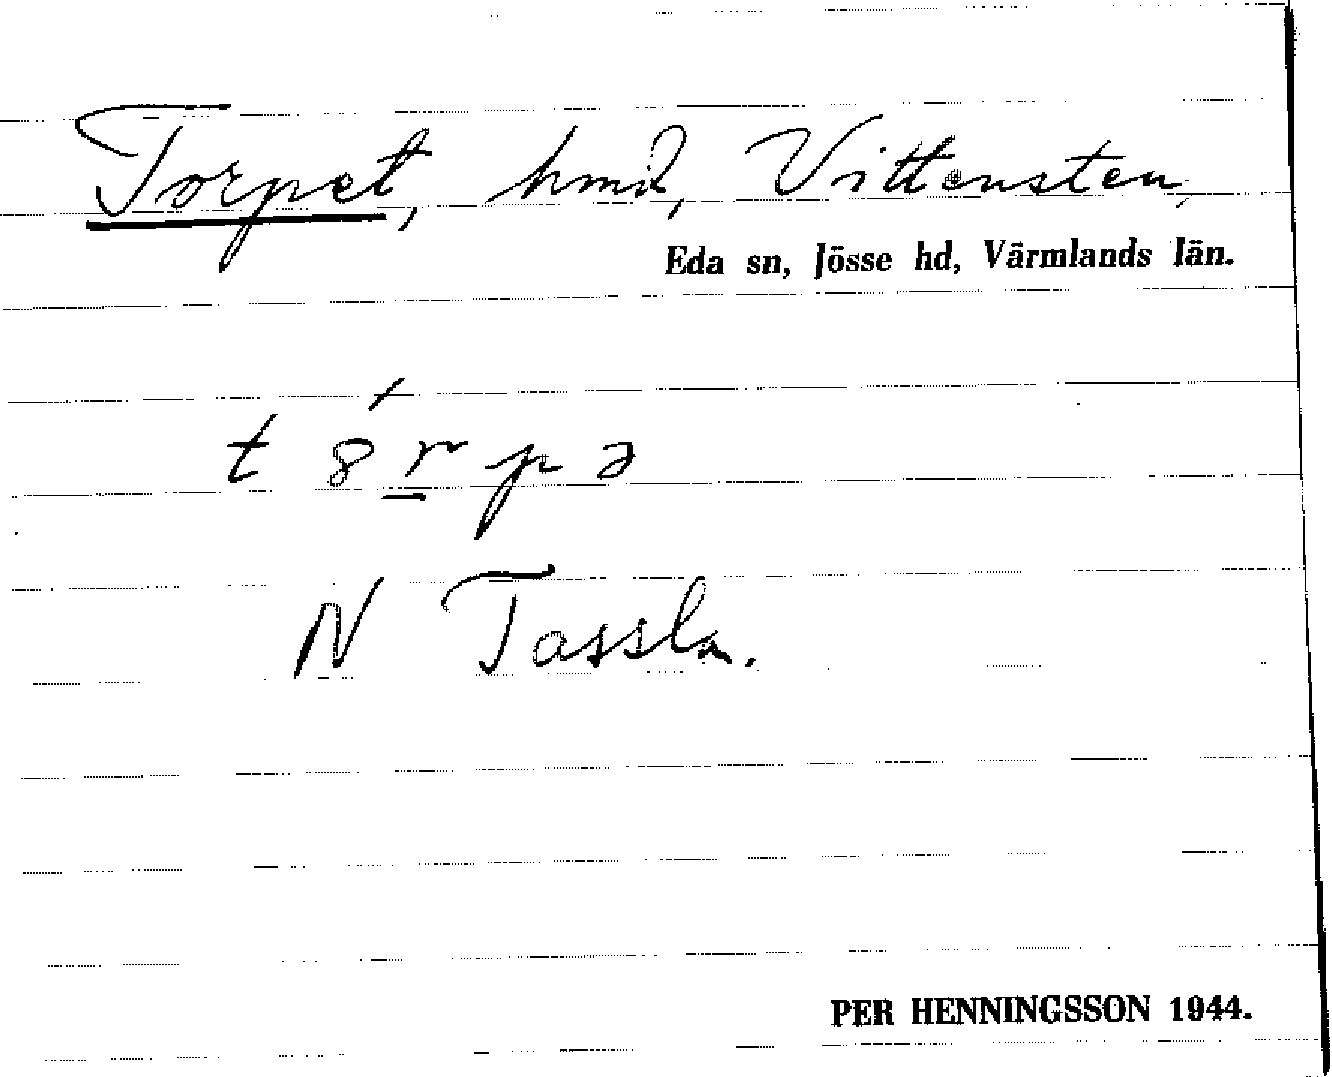 Torpet, hmd, Vittensten,
Eda sn, Jösse hd, Värmlands län.
t 8́ r̲ p ə
N Tassla.
PER HENNINGSSON 1944.